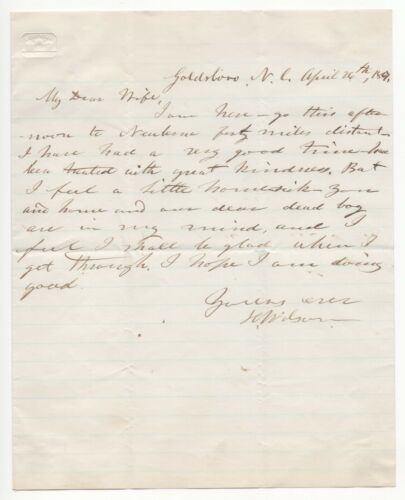 Goldsboro N. C. April 24th, 
My Dear Wife,
I am here - go this after
noon to Newberne forty miles distant.
I have had a very good time - have
been treated with great kindness. But
I feel a little homesik - you
and home and our dear dead boy
are in my mind, and I
feel I shall be glad when I
get through. I hope I am doing
good.
Yours ever
H Wilson